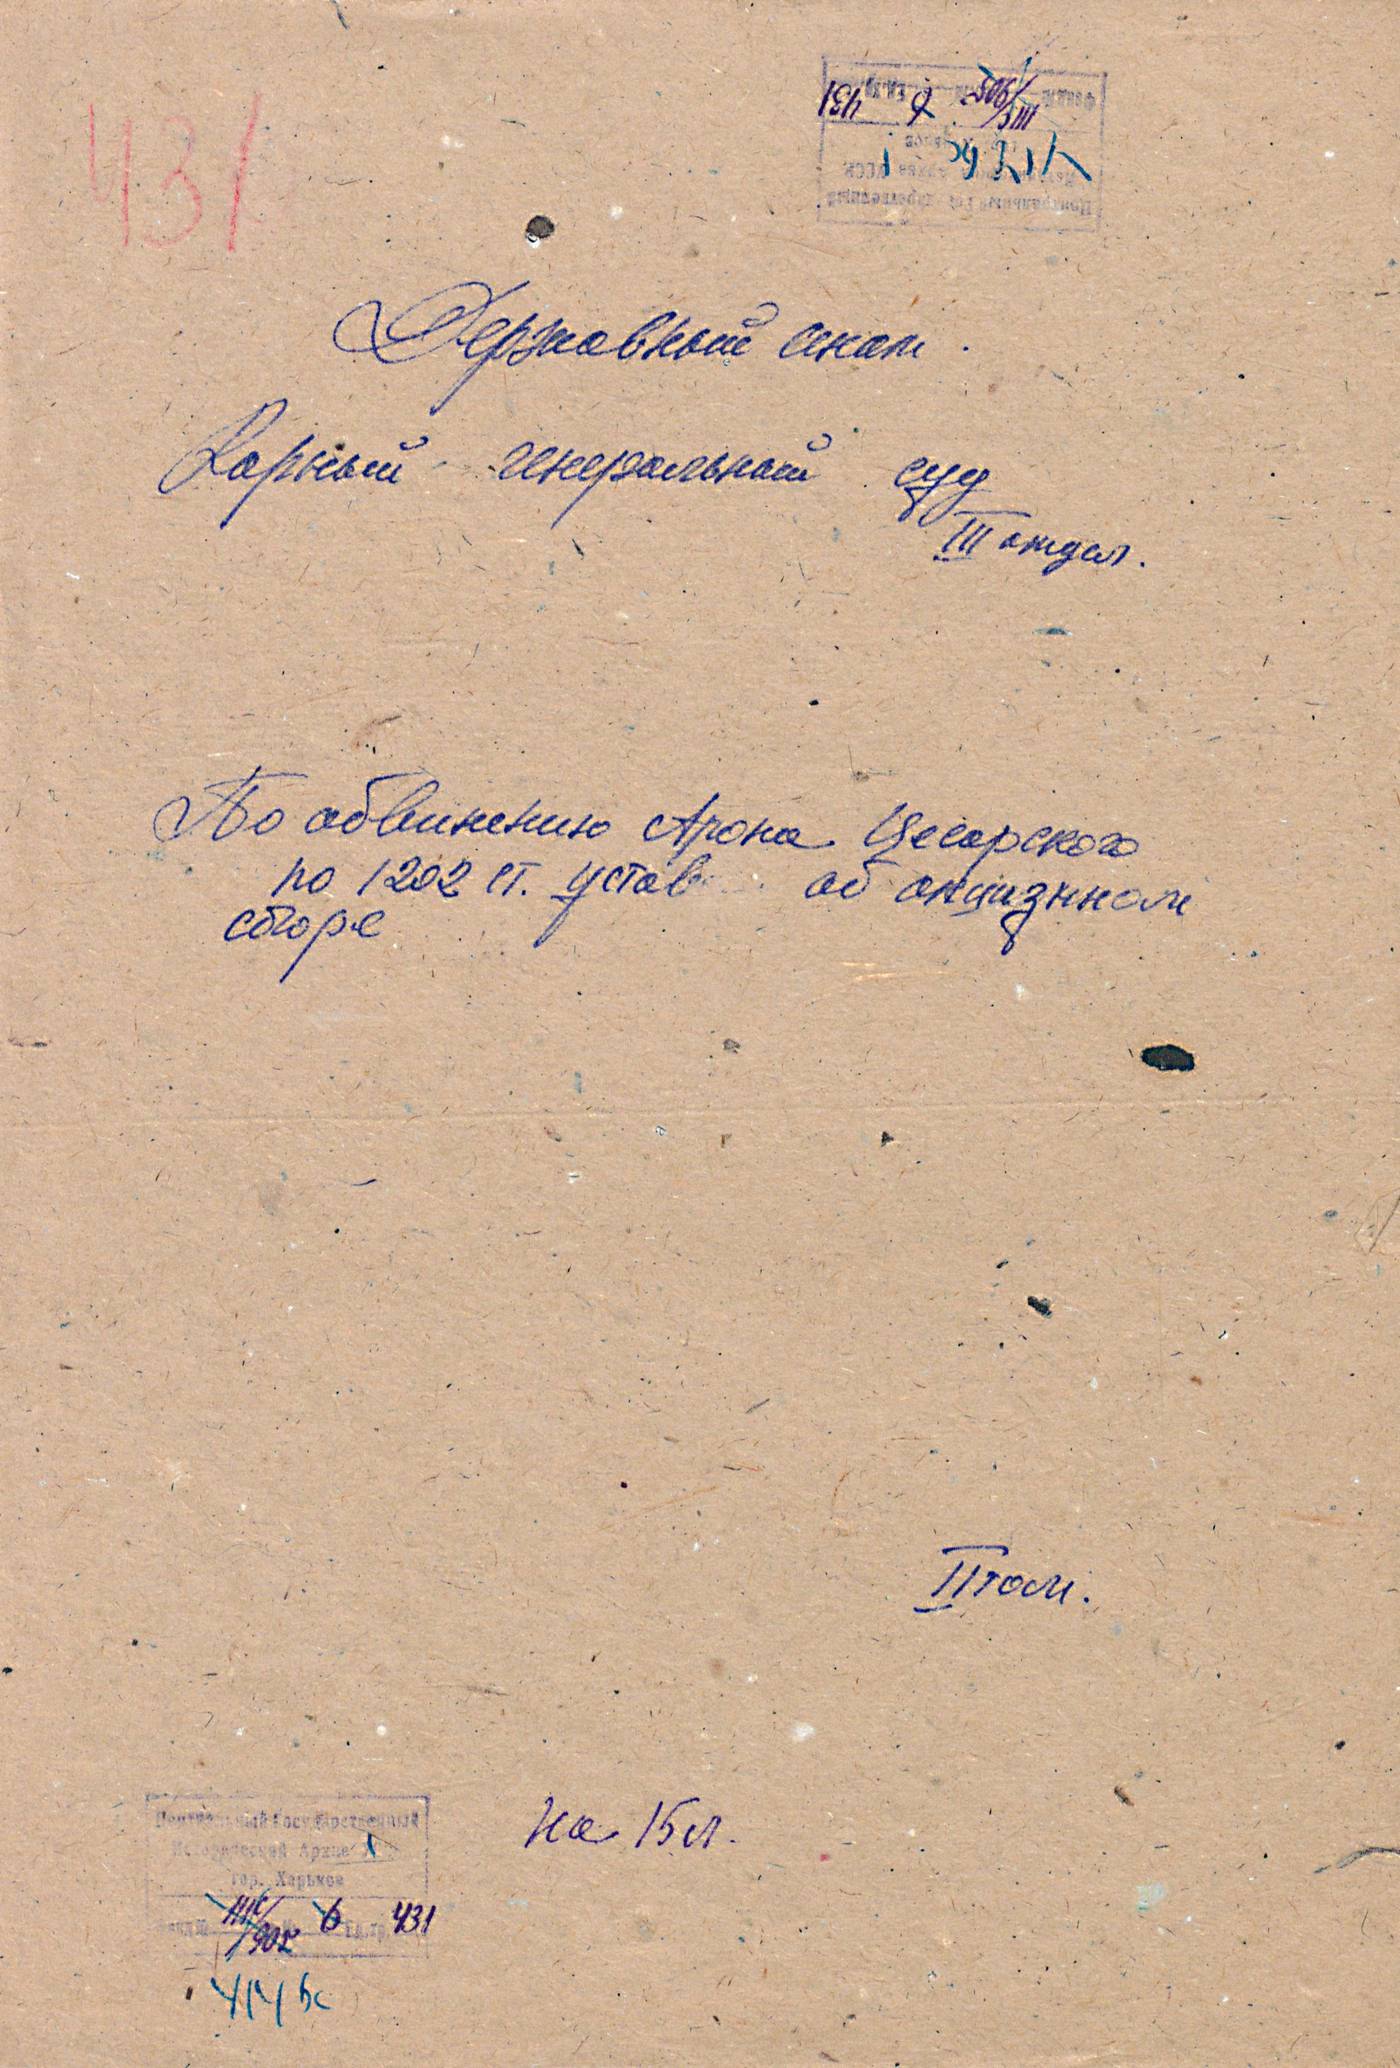 431
Державный сенат.
Карный генеральный суд
III отдел.
По обвинению Арона Цесарского
по 1202 ст. устав об акцизном
сборе
II том.
на 15 л.
Центральный Государственный
Исторический Архив
гор. Харьков
6 431